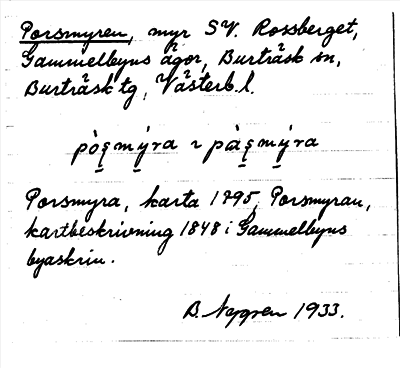 Porsmyren, myr SV. Rossberget,
Gammelbyns ägor, Burträsk sn,
Burträsk tg, Västerb. l.
Porsmyra, karta 1795, Porsmyran,
kartbeskrivning 1848 i Gammelbyns
byaskrin.
B. Nygren 1933.